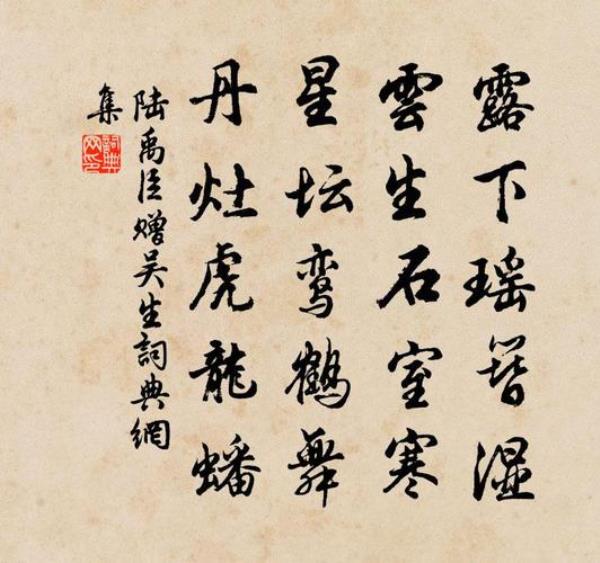 露下瑶簪湿
雲生石室寒
星坛鸾鶴舞
丹灶虎龍蟠
陆禹臣赠吴生詞典網
集
詞典網印